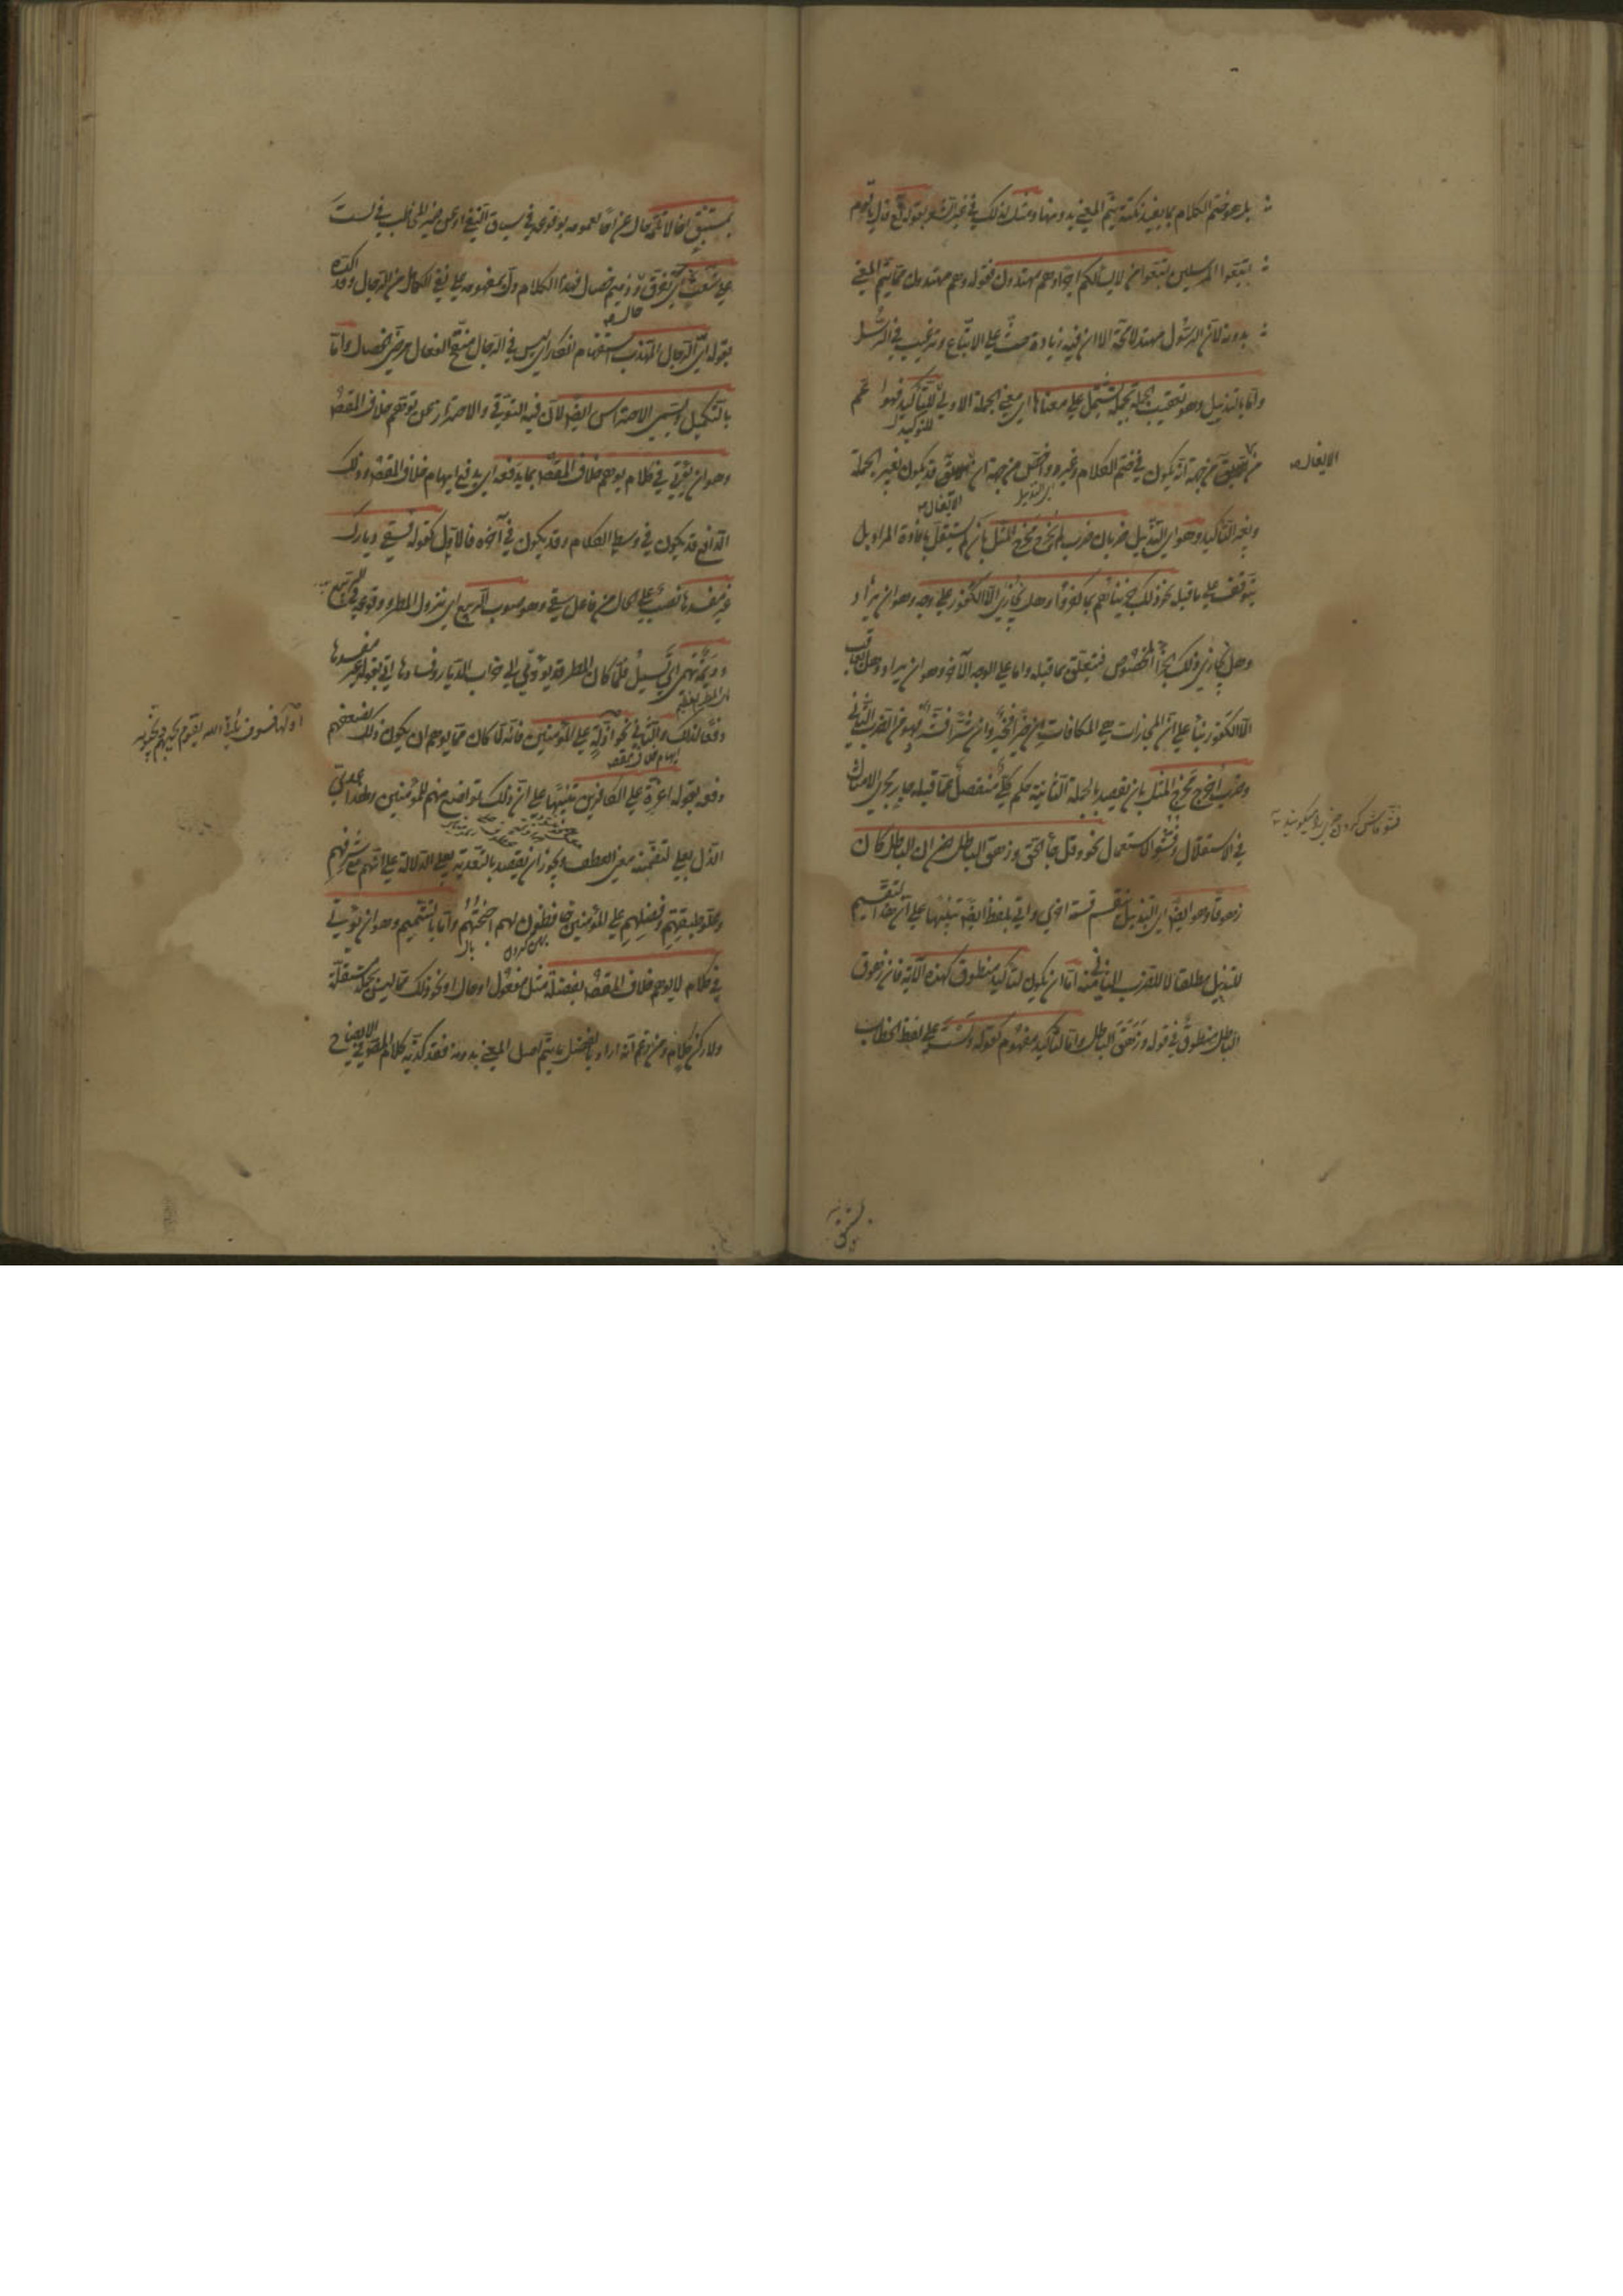 بل هو ختم الكلام بما يفيد نكتة يتم المعنى بدونها ومثل لذلك في غير الشعر بقوله تع قال يا قوم
اتبعوا المرسلين اتبعوا من لا يسألكم اجرا وهم مهتدون فقوله وهم مهتدون مما يتم المعنى
بدونه لان الرسول مهتد لا محة الا ان فيه زيادة حث على الاتباع وترغيب في الرسل
واما بالتذييل وهو تعقيب الجملة بجملة يشتمل على معناها اى معنى الجملة الاولى للتأكيد فهو اعم
للتوكيد
من الايغال من جهة انه يكون في ختم الكلام وغيره واخص من جهة ان الايغال قد يكون بغير الجملة
الايغال
ولغير التأكيد وهو اى التذييل ضربان ضرب لم يخرج مخرج المثل بان لم يستقل بافادة المراد بل
يتوقف على ما قبله نحو ذلك جزيناهم بما كفروا وهل نجازى الا الكفور على وجه وهو ان يراد
وهل نجازى ذلك الجزاء المخصوص فيتعلق بما قبله واما على الوجه الآخر وهو ان يراد وهل يعاقب
الا الكفور بناء على ان المجازات هي المكافات ان خيرا فخير وان شرا فشر فهو من الضرب الثاني
وضرب اخرج مخرج المثل بان يقصد بالجملة الثانية حكم كلى منفصل عما قبله جار مجرى الامثال
في الاستقلال وفشو الاستعمال نحو وقل جاء الحق وزهق الباطل ان الباطل كان
زهوقا وهو ايضا اى التذييل ينقسم قسمة اخرى واتى بلفظ ايضا تنبيها على ان هذا التقسيم
للتذييل مطلقا لا للضرب الثاني منه اما ان يكون لتأكيد منطوق كهذه الآية فان زهوق
الباطل منطوق في قوله وزهق الباطل واما لتأكيد مفهوم كقوله ولست على لفظ الخطاب
بمستبق اخا لا تلمه حال عن اخا لعمومه بوقوعه في سياق النفي او عن ضمير المخاطب في لست
على شعث اى تفرق وذميم خصال فهذا الكلام دل بمفهومه على نفي الكامل من الرجال وقد اكده
بقوله اى الرجال المهذب استفهام انكار اى ليس في الرجال منقح الفعال مرضى الخصال واما
بالتكميل ويسمى الاحتراس ايضا لان فيه التوقي والاحتراز عن توهم خلاف المقص
وهو ان يؤتى في كلام يوهم خلاف المقص بما يدفعه اى يدفع ايهام خلاف المقص وذلك
الدافع قد يكون في وسط الكلام وقد يكون في آخره فالاول كقوله فسقى ديارك
غير مفسدها نصب على الحال من فاعل سقى وهو صوب الربيع اى نزول المطر ووقوعه في الربيع
وديمة تهمى اى تسيل فلما كان المطر قد يؤول الى خراب الديار وفسادها اتى بقوله غير مفسدها
دفعا لذلك والثاني نحو اذلة على المؤمنين فانه لما كان مما يوهم ان يكون ذلك لضعفهم
دفعه بقوله اعزة على الكافرين تنبيها على ان ذلك تواضع منهم للمؤمنين ولهذا عدى
الذل بعلى لتضمنه معنى العطف ويجوز ان يقصد بالتعدية بعلى الدلالة على انهم مع شرفهم
وعلو طبقتهم وفضلهم على المؤمنين خافضون لهم اجنحتهم واما بالتتميم وهو ان يؤتى
في كلام لا يوهم خلاف المقص بفضلة مثل مفعول او حال او نحو ذلك مما ليس بجملة مستقلة
ولا ركن كلام ومن زعم انه اراد بالفضلة ما يتم اصل المعنى بدونه فقد كذبه كلام المص في الايضاح